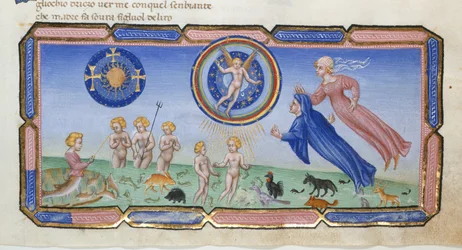 gliochio drizo ver me conquel senbiante
che madre fa sovra figluol deliro